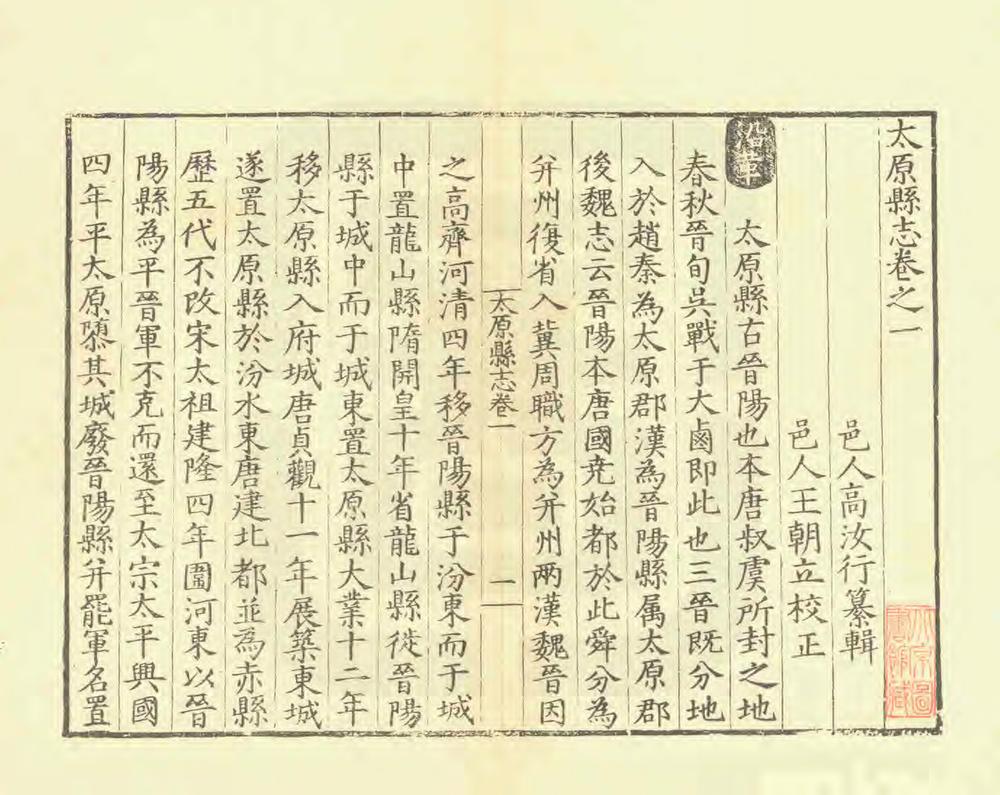 太原縣志卷之一
邑人高汝行纂輯
邑人王朝立校正
沿革
太原縣古晉陽也本唐叔虞所封之地
春秋晉旬吳戰于大鹵即此也三晉既分地
入於趙秦為太原郡漢為晉陽縣属太原郡
後魏志云晉陽本唐國尭始都於此舜分為
并州復省入冀周職方為并州兩漢魏晉因
太原縣志卷一
一
之高齊河清四年移晉陽縣于汾東而于城
中置龍山縣隋開皇十年省龍山縣徙晉陽
縣于城中而于城東置太原縣大業十二年
移太原縣入府城唐貞觀十一年展築東城
遂置太原縣於汾水東唐建北都並為赤縣
歷五代不改宋太祖建隆四年圍河東以晉
陽縣為平晉軍不克而還至太宗太平興國
四年平太原隳其城廢晉陽縣并罷軍名置